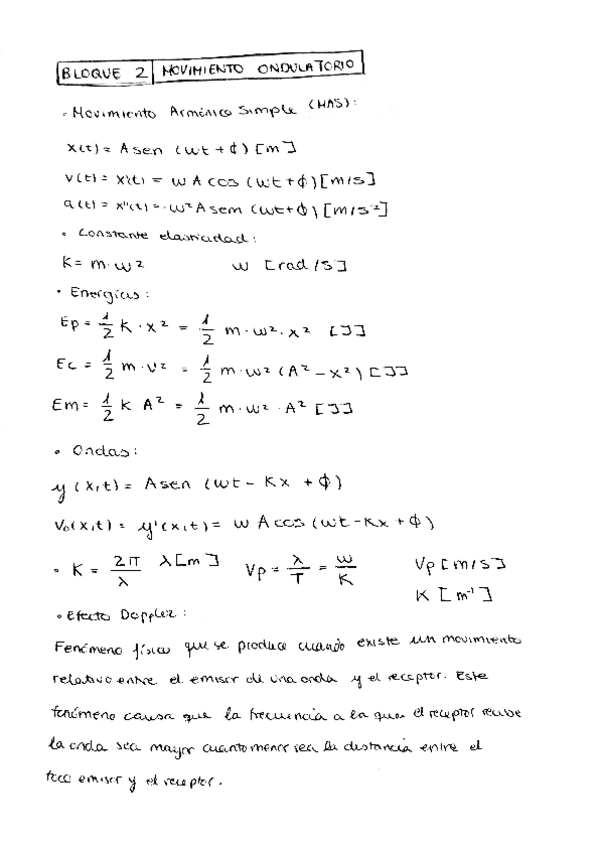 BLOQUE 2 | MOVIMIENTO ONDULATORIO
• Movimiento Armónico Simple (MAS):
x(t) = A sen (wt + ϕ) [m]
v(t) = x'(t) = w A cos (wt + ϕ) [m/s]
a(t) = x''(t) = - w² A sem (wt + ϕ) [m/s²]
• Constante elasticidad:
K = m · w² w [rad/s]
• Energías:
Ep = 1/2 K · x² = 1/2 m · w² · x² [J]
Ec = 1/2 m · v² = 1/2 m · w² (A² - x²) [J]
Em = 1/2 K A² = 1/2 m · w² · A² [J]
• Ondas:
y (x,t) = A sen (wt - Kx + ϕ)
Vo(x,t) = y'(x,t) = w A cos (wt - Kx + ϕ)
• K = 2π/λ λ [m] Vp = λ/T = w/K Vp [m/s]
K [m⁻¹]
• Efecto Doppler:
Fenómeno físico que se produce cuando existe un movimiento
relativo entre el emisor de una onda y el receptor. Este
fenómeno causa que la frecuencia a la que el receptor recibe
la onda sea mayor cuanto menor sea la distancia entre el
foco emisor y el receptor.